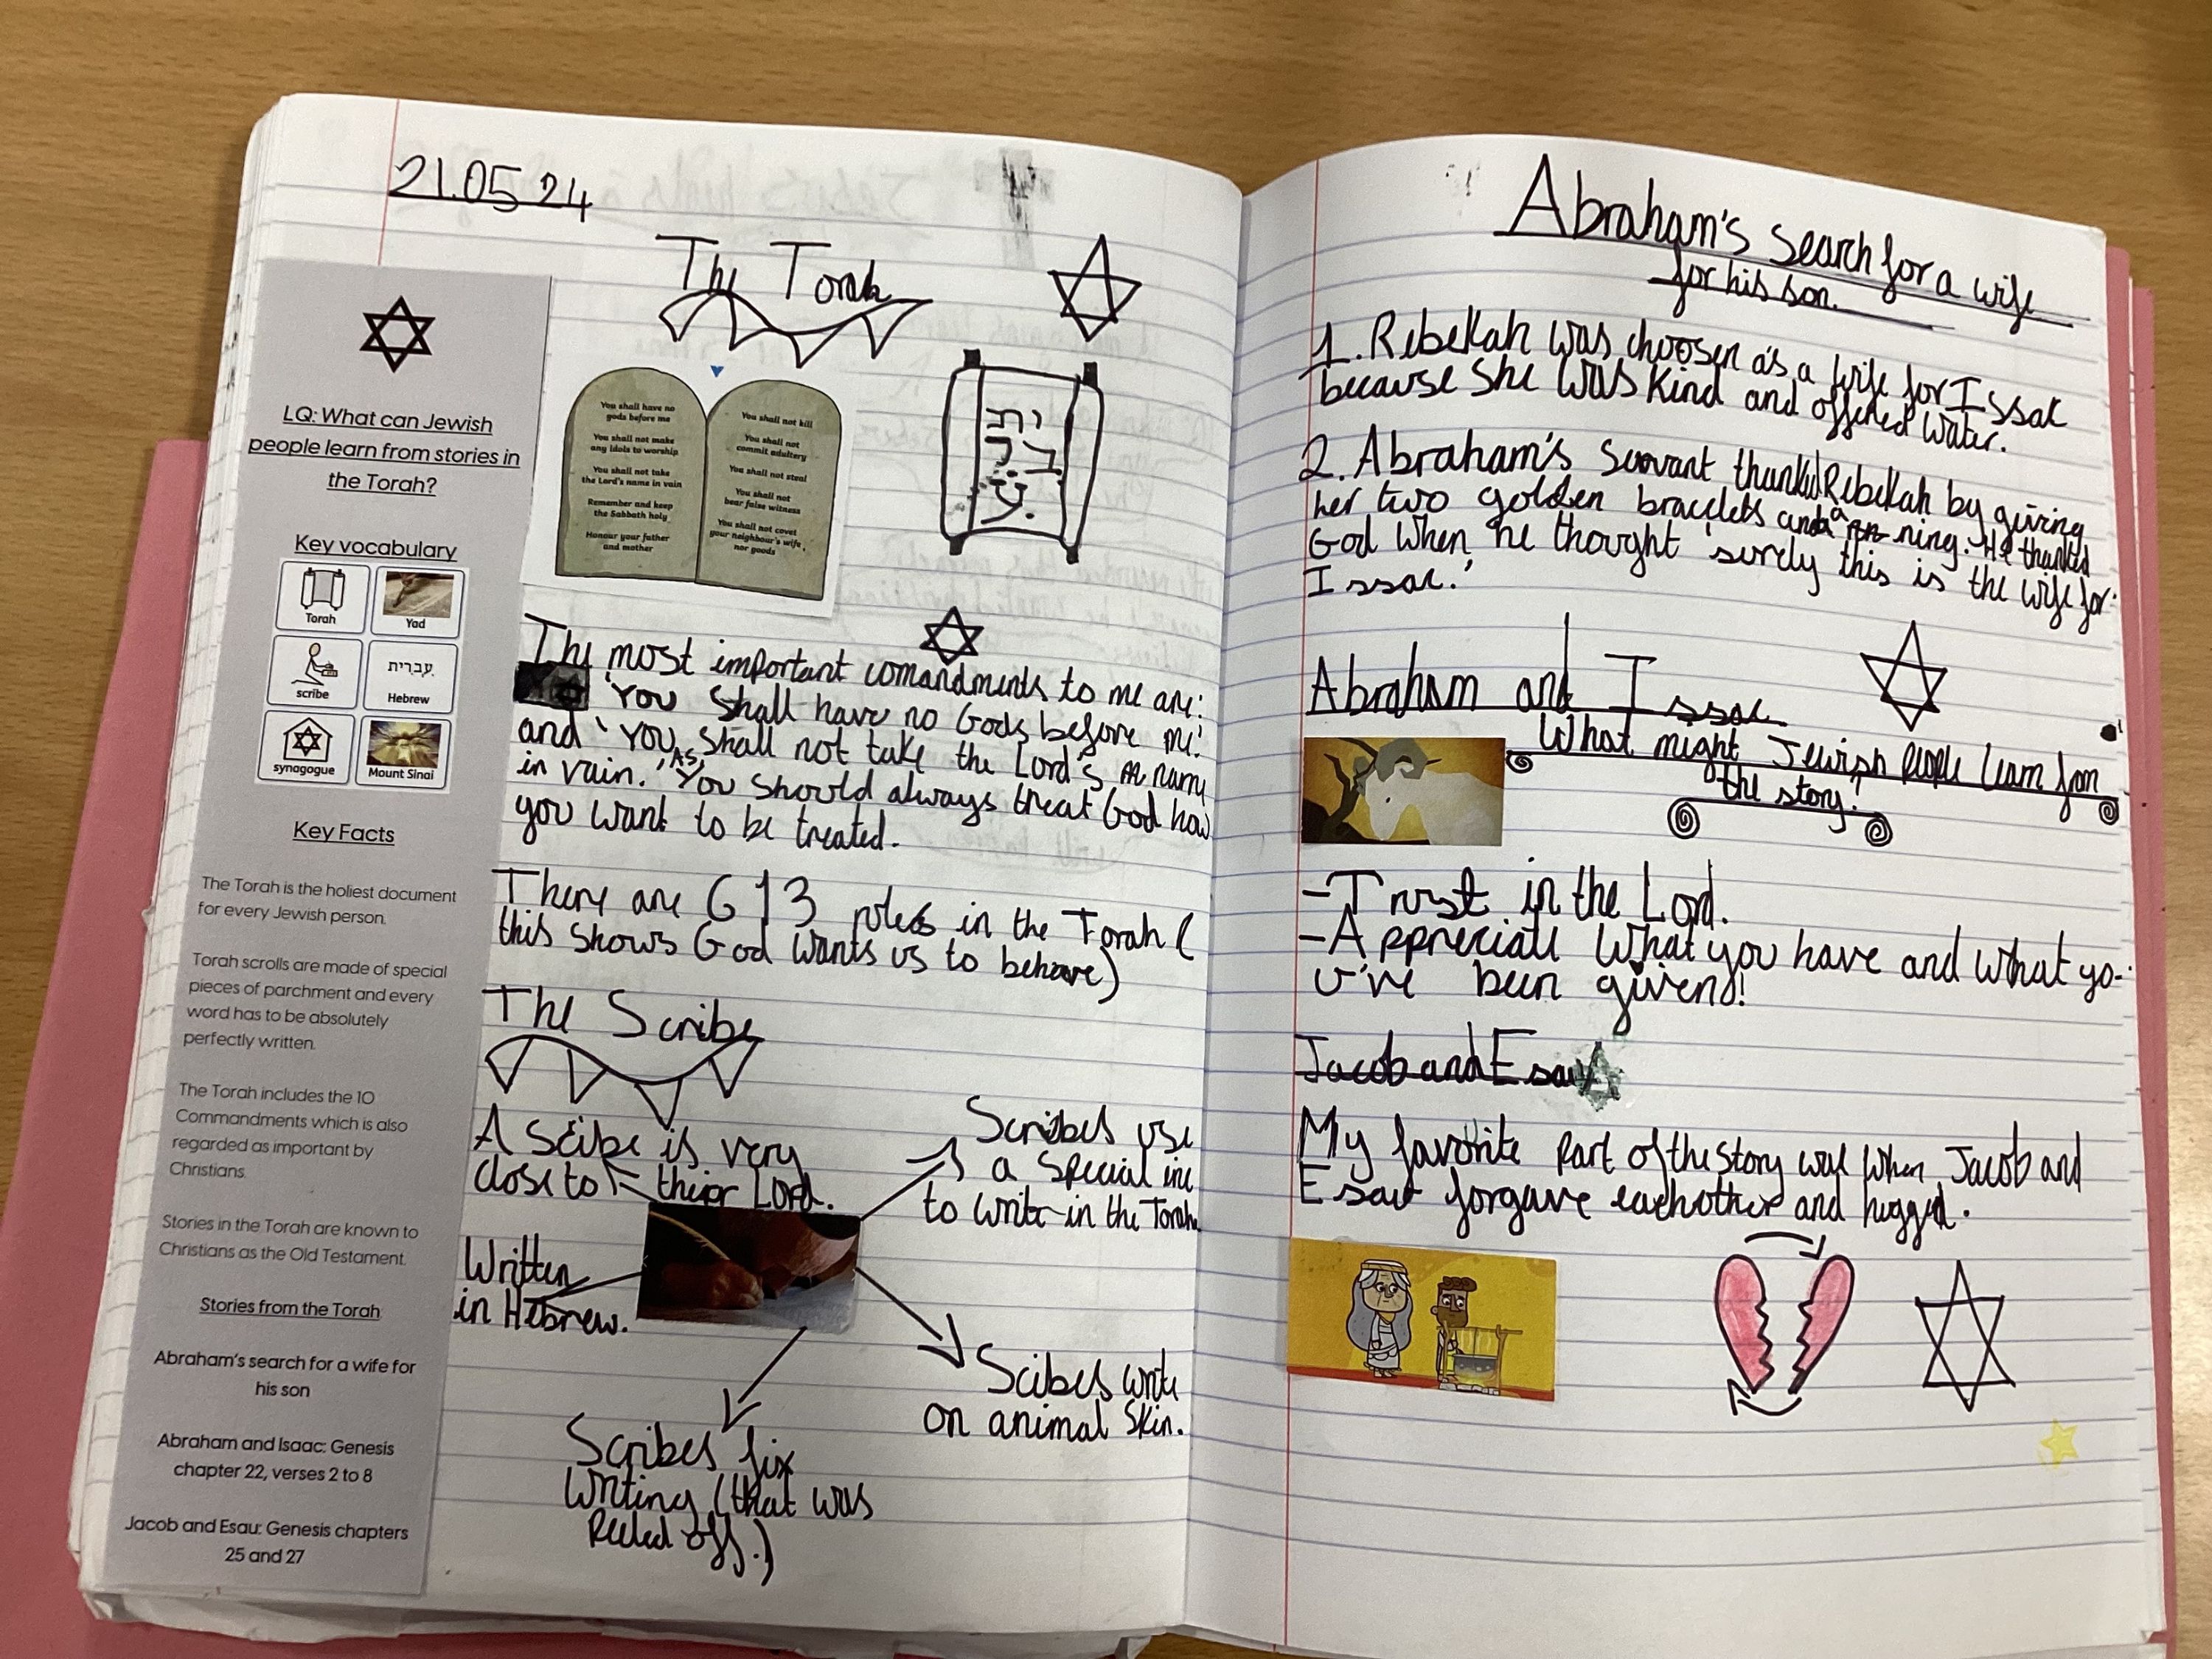 21.05.24
The Torah
LQ: What can Jewish
people learn from stories in
the Torah?
Key vocabulary
Torah
Yad
scribe
עִבְרִית
Hebrew
synagogue
Mount Sinai
Key Facts
The Torah is the holiest document
for every Jewish person.
Torah scrolls are made of special
pieces of parchment and every
word has to be absolutely
perfectly written.
The Torah includes the 10
Commandments which is also
regarded as important by
Christians.
Stories in the Torah are known to
Christians as the Old Testament.
Stories from the Torah
Abraham's search for a wife for
his son
Abraham and Isaac: Genesis
chapter 22, verses 2 to 8
Jacob and Esau: Genesis chapters
25 and 27
You shall have no
gods before me
You shall not make
any idols to worship
You shall not take
the Lord's name in vain
Remember and keep
the Sabbath holy
Honour your father
and mother
You shall not kill
You shall not
commit adultery
You shall not steal
You shall not
bear false witness
You shall not covet
your neighbour's wife,
nor goods
The most important comandments to me are:
'You shall have no Gods before me.'
and 'You shall not take the Lord's name
in vain.' As, You should always treat God how
you want to be treated.
There are 613 rules in the Torah (
this shows God wants us to behave)
The Scribe
A scibe is very
close to their Lord.
Scribes use
a special inc
to write in the Torah.
Written
in Hebrew.
Scibes write
on animal skin.
Scribes fix
writing (that was
peeled off.)
Abraham's search for a wife
for his son.
1. Rebekah was choosen as a wife for Issac
because she was kind and offered water.
2. Abraham's servant thanked Rebekah by giving
her two golden bracelets and a ning. He thanked
God when he thought 'surely this is the wife for
Issac.'
Abraham and Issac
What might Jewish people learn from
the story?
-Trust in the Lord.
-Appreciate what you have and what yo-
u've been given!
Jacob and Esau
My favorite part of the story was when Jacob and
Esau forgave eachother and hugged.